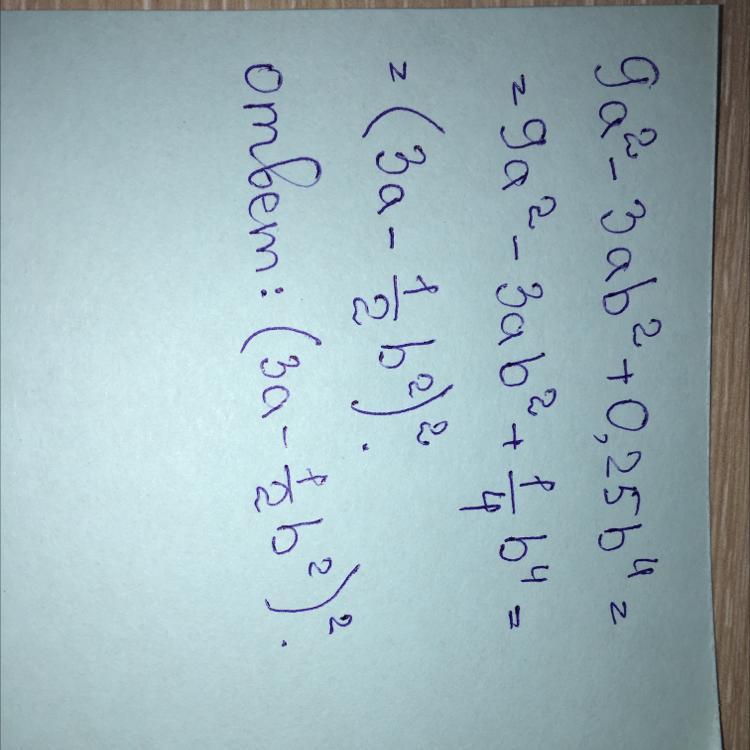 9a² - 3ab² + 0,25b⁴ =
= 9a² - 3ab² + 1/4 b⁴ =
= (3a - 1/2 b²)².
Ответ: (3a - 1/2 b²)².